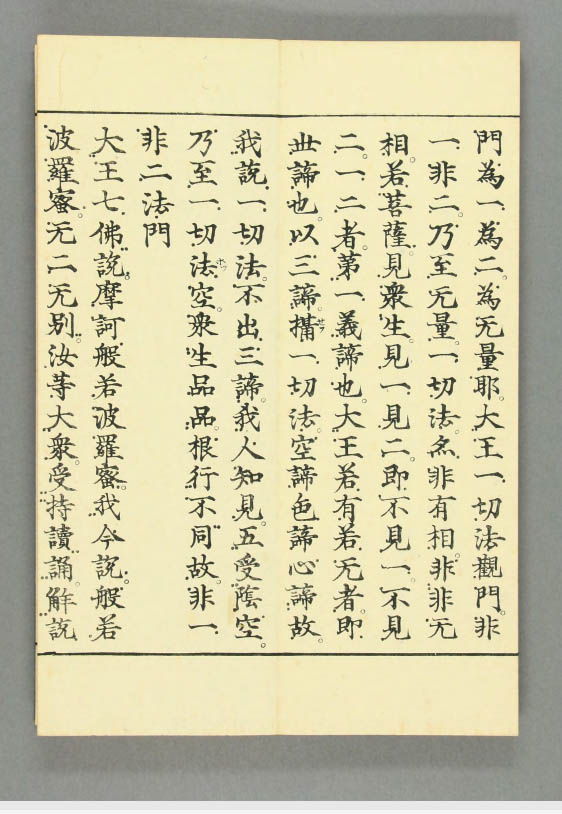 門為一為二為无量耶大王一切法觀門非
一非二乃至无量一切法亦非有相非非无
相若菩薩見衆生見一見二即不見一不見
二一二者第一義諦也大王若有若无者即
丗諦也以三諦攝一切法空諦色諦心諦故
我說一切法不出三諦我人知見五受陰空
乃至一切法空衆生品品根行不同故非一
非二法門
大王七佛說摩訶般若波羅蜜我今說般若
波羅蜜无二无別汝等大衆受持讀誦解說